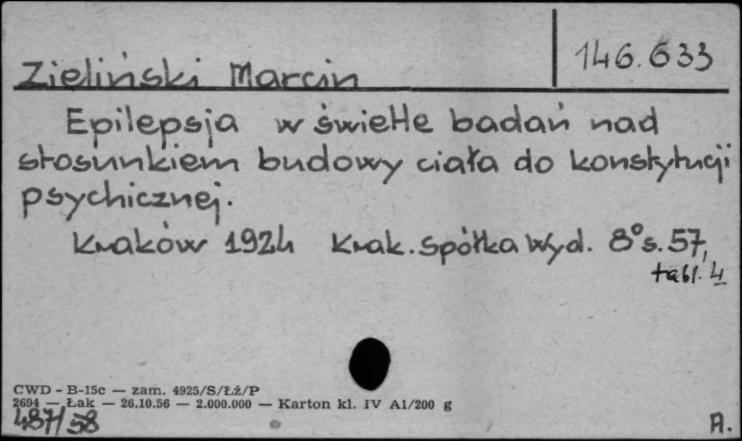 146.633
Zieliński Marcin
Epilepsja w świetle badań nad
stosunkiem budowy ciała do konstytucji
psychicznej.
Kraków 1924 Krak. Spółka Wyd. 8° s. 57,
tabl. 4
CWD - B-15c — zam. 4925/S/Łż/P
2694 — Łak — 26.10.56 — 2.000.000 — Karton kl. IV A1/200 g
487/58
A.